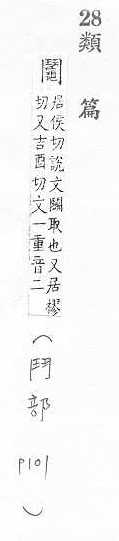 28 類篇
鬮
居侯切說文鬭取也又居樛
切又吉酉切文一重音二
(鬥部 P101)